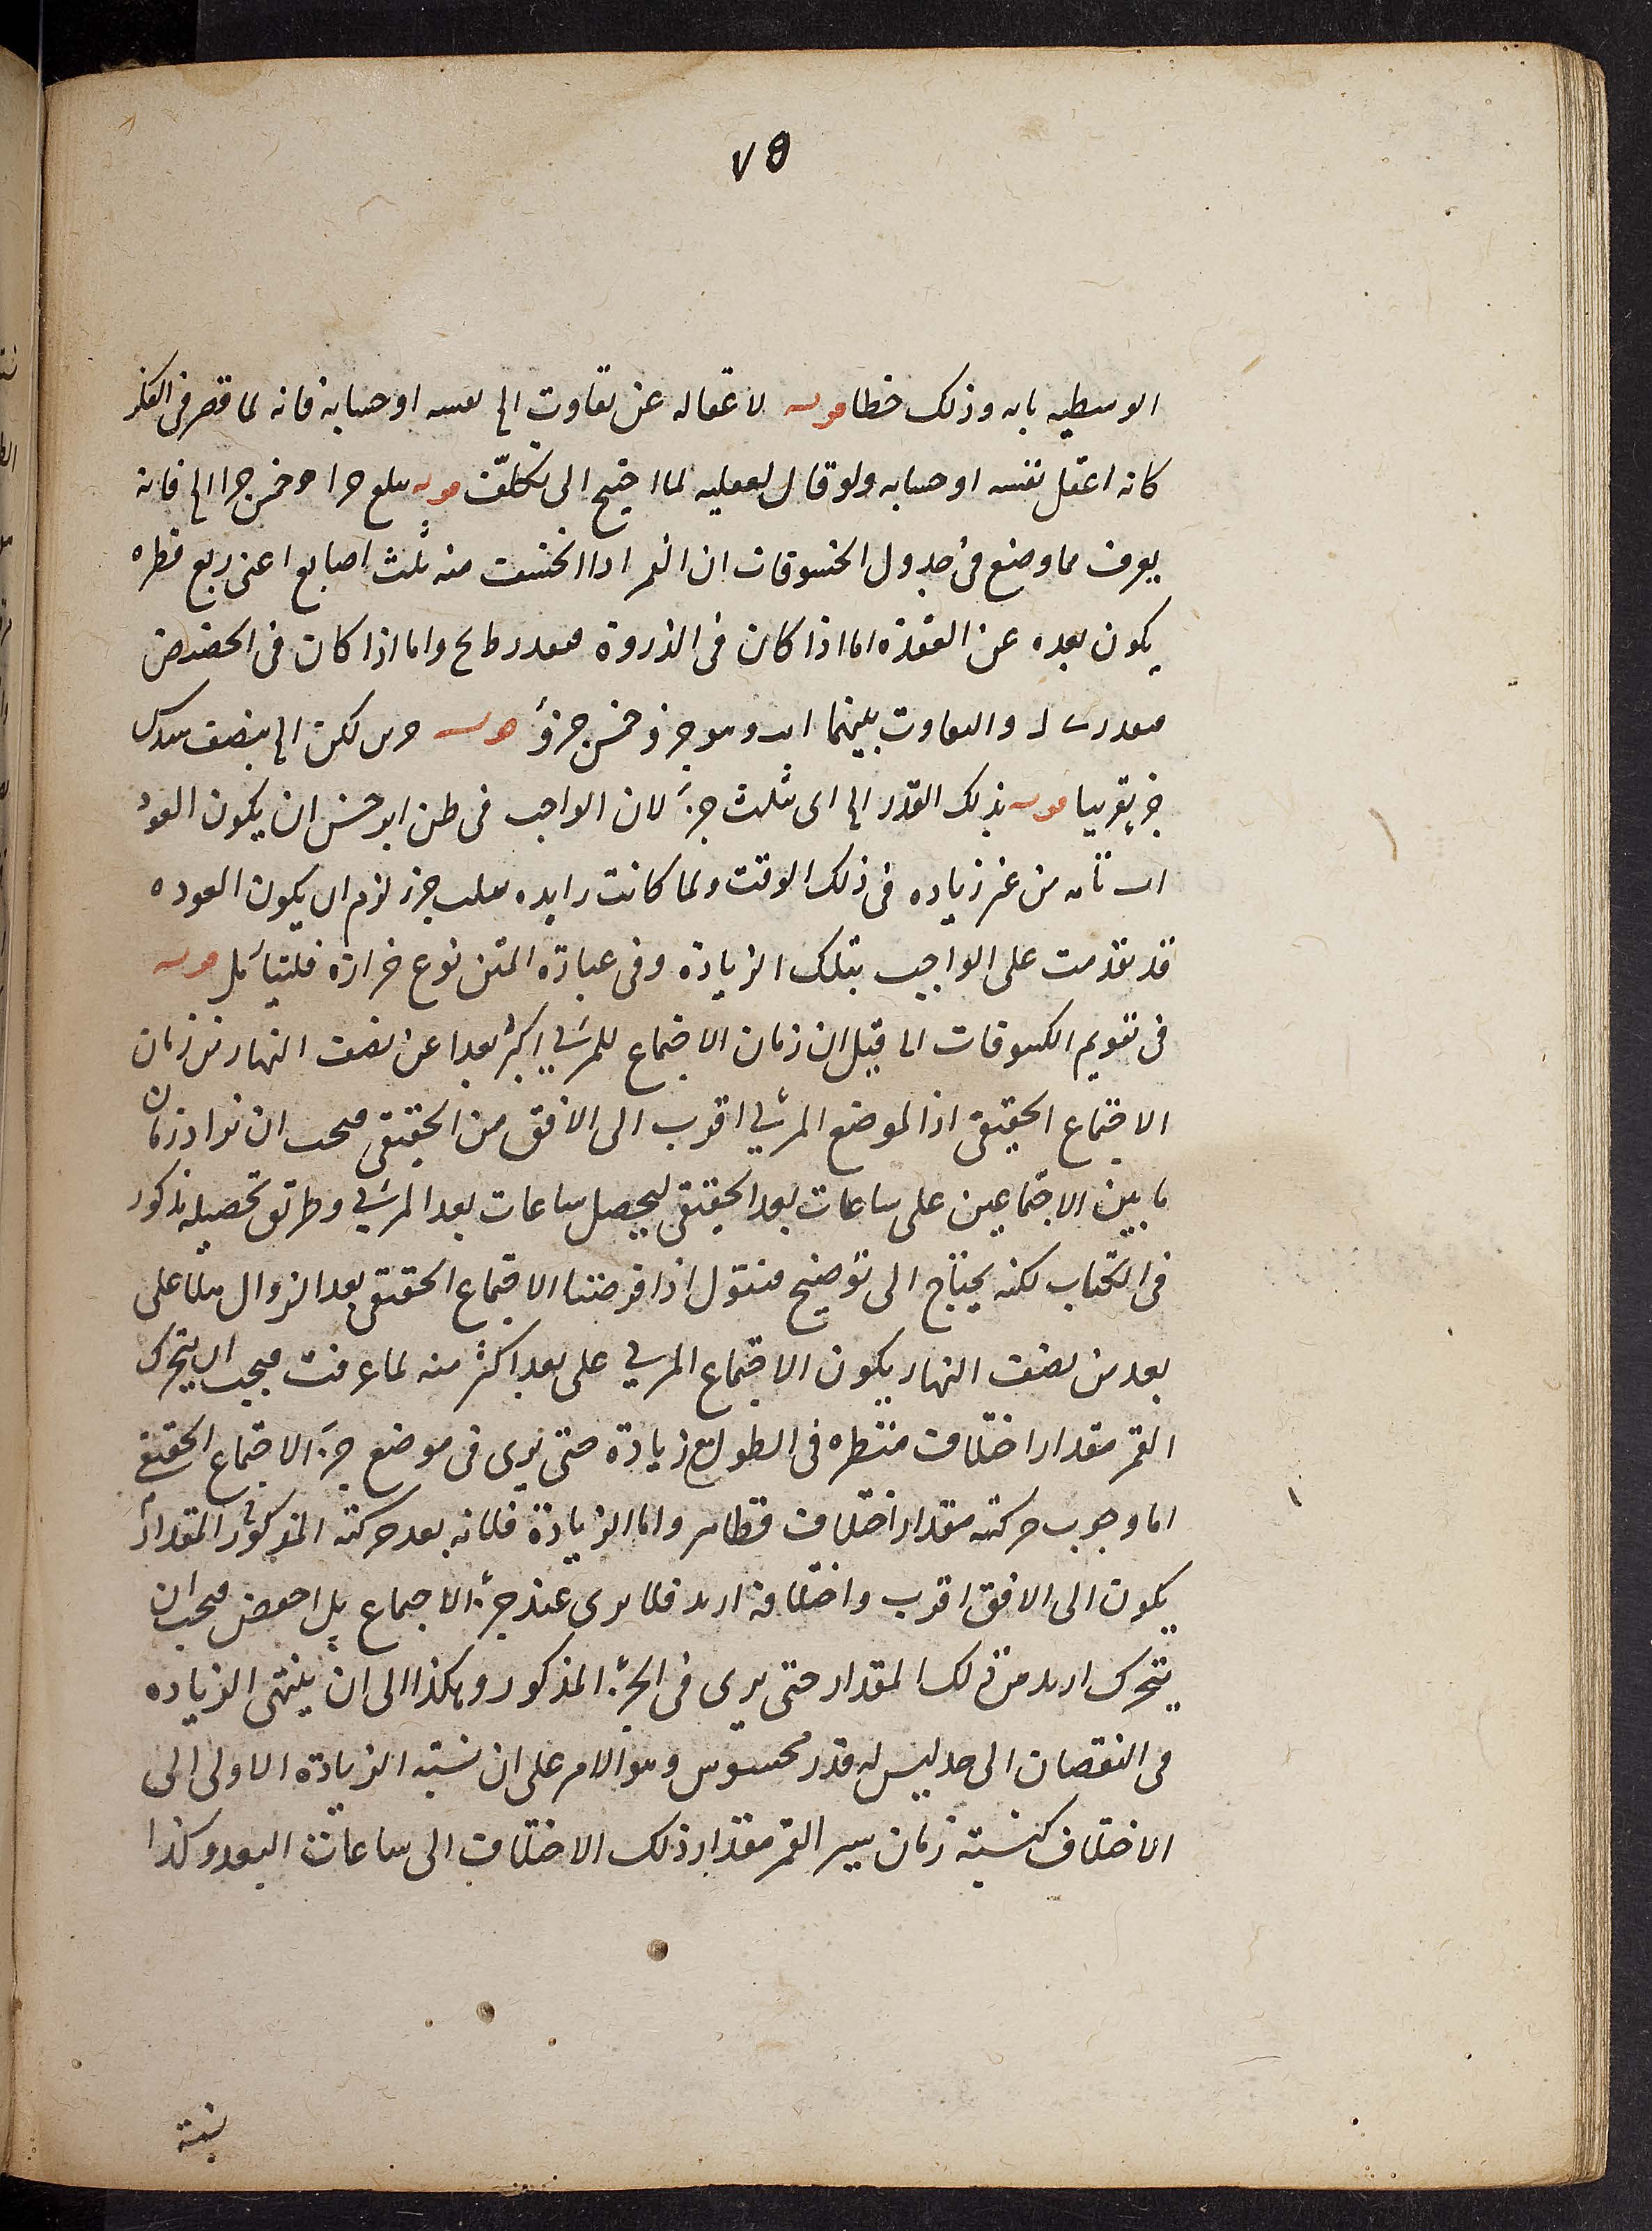 ٧٥
الوسطيه بانه وذلك خطا قوله لاغفاله عن تفاوت الخ نفسه او حسابه فانه لما قصر فى الفكر
كانه اغفل نفسه او حسابه ولو قال لغفليه لما احتيج الى تكلّف قوله يبلغ جزا وخمس جزا الخ فانه
يعرف مما وضع فى جدول الخسوفات ان القمر اذا انخسفت منه ثلث اصابع اعنى ربع قطره
يكون بعده عن العقدة اما اذا كان فى الذروة فبقدر ط ح واما اذا كان فى الحضيض
فبقدر والتفاوت بينهما ا ب وهو جزؤ وخمس جزؤ قوله لكن الخ بنصف سدس
جزء تقريبا قوله بذلك القدر الخ اى بثلث جزء لان الواجب فى ظن ابرخس ان يكون العودة
تامه من غير زياده فى ذلك الوقت ولما كانت زايده بثلث جزء لزم ان يكون العوده
قد تقدمت على الواجب بتلك الزيادة وفى عبارة المتن نوع حزازة فليتأمل قوله
فى تقويم الكسوفات الخ قيل ان زمان الاجتماع المرئي اكثر بعدا عن نصف النهار من زمان
الاجتماع الحقيقى اذ الموضع المرئي اقرب الى الافق من الحقيقى فيجب ان نزاد زمان
ما بين الاجتماعين على ساعات بعد الحقيقى ليحصل ساعات بعد المرئي وطريق تحصيله مذكور
فى الكتاب لكنه يحتاج الى توضيح فنقول اذا فرضنا الاجتماع الحقيقى بعد الزوال مثلا على
بعد من نصف النهار يكون الاجتماع المرئي على بعد اكثر منه لما عرفت فيجب ان يتحرك
القمر مقدار اختلاف منظره فى الطول مع زيادة حتى يرى فى موضع جزء الاجتماع الحقيقى
اما وجوب حركته مقدار اختلاف فظاهر واما الزيادة فلانه بعد حركته المذكور المقدار
يكون الى الافق اقرب واختلافه ازيد فلا يرى عند جزء الاجتماع بل اخفض فيجب ان
يتحرك ازيد من ذلك المقدار حتى يرى فى الجزء المذكور وهكذا الى ان ينتهى الزياده
فى النقصان الى حد ليس له قدر محسوس وهو الامر على ان نسبته الزيادة الاولى الى
الاختلاف كنسبته زمان سير القمر مقدار ذلك الاختلاف الى ساعات البعد وكذا
نسبة